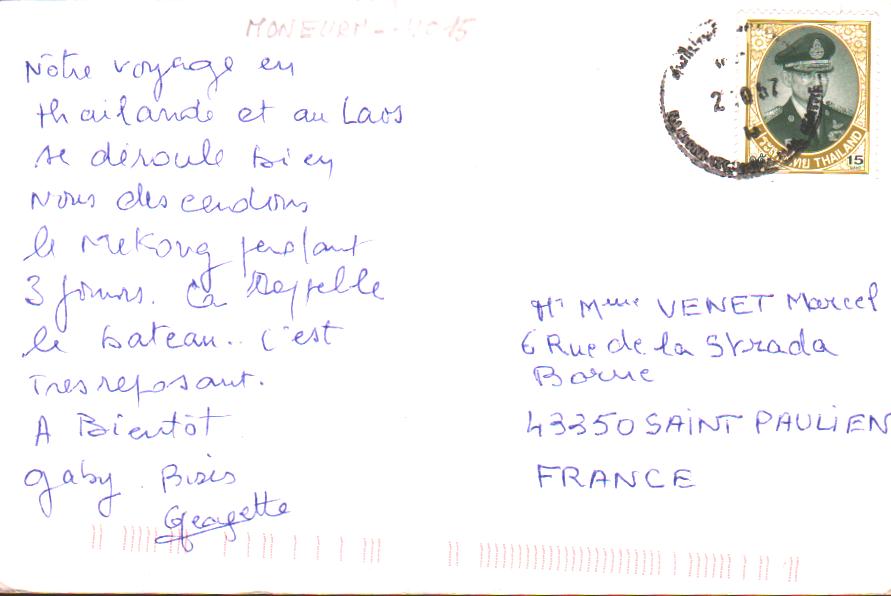 Nôtre voyage en
thailande et au Laos
se déroule bien
Nous descendons
le Mekong pendant
3 jours. Ca Rappelle
le bateau.. c'est
Tres reposant.
A Bientôt
gaby. Bises
Georgette
THAILAND
15
Mr Mme VENET Marcel
6 Rue de la Strada
Borne
43350 SAINT PAULIEN
FRANCE